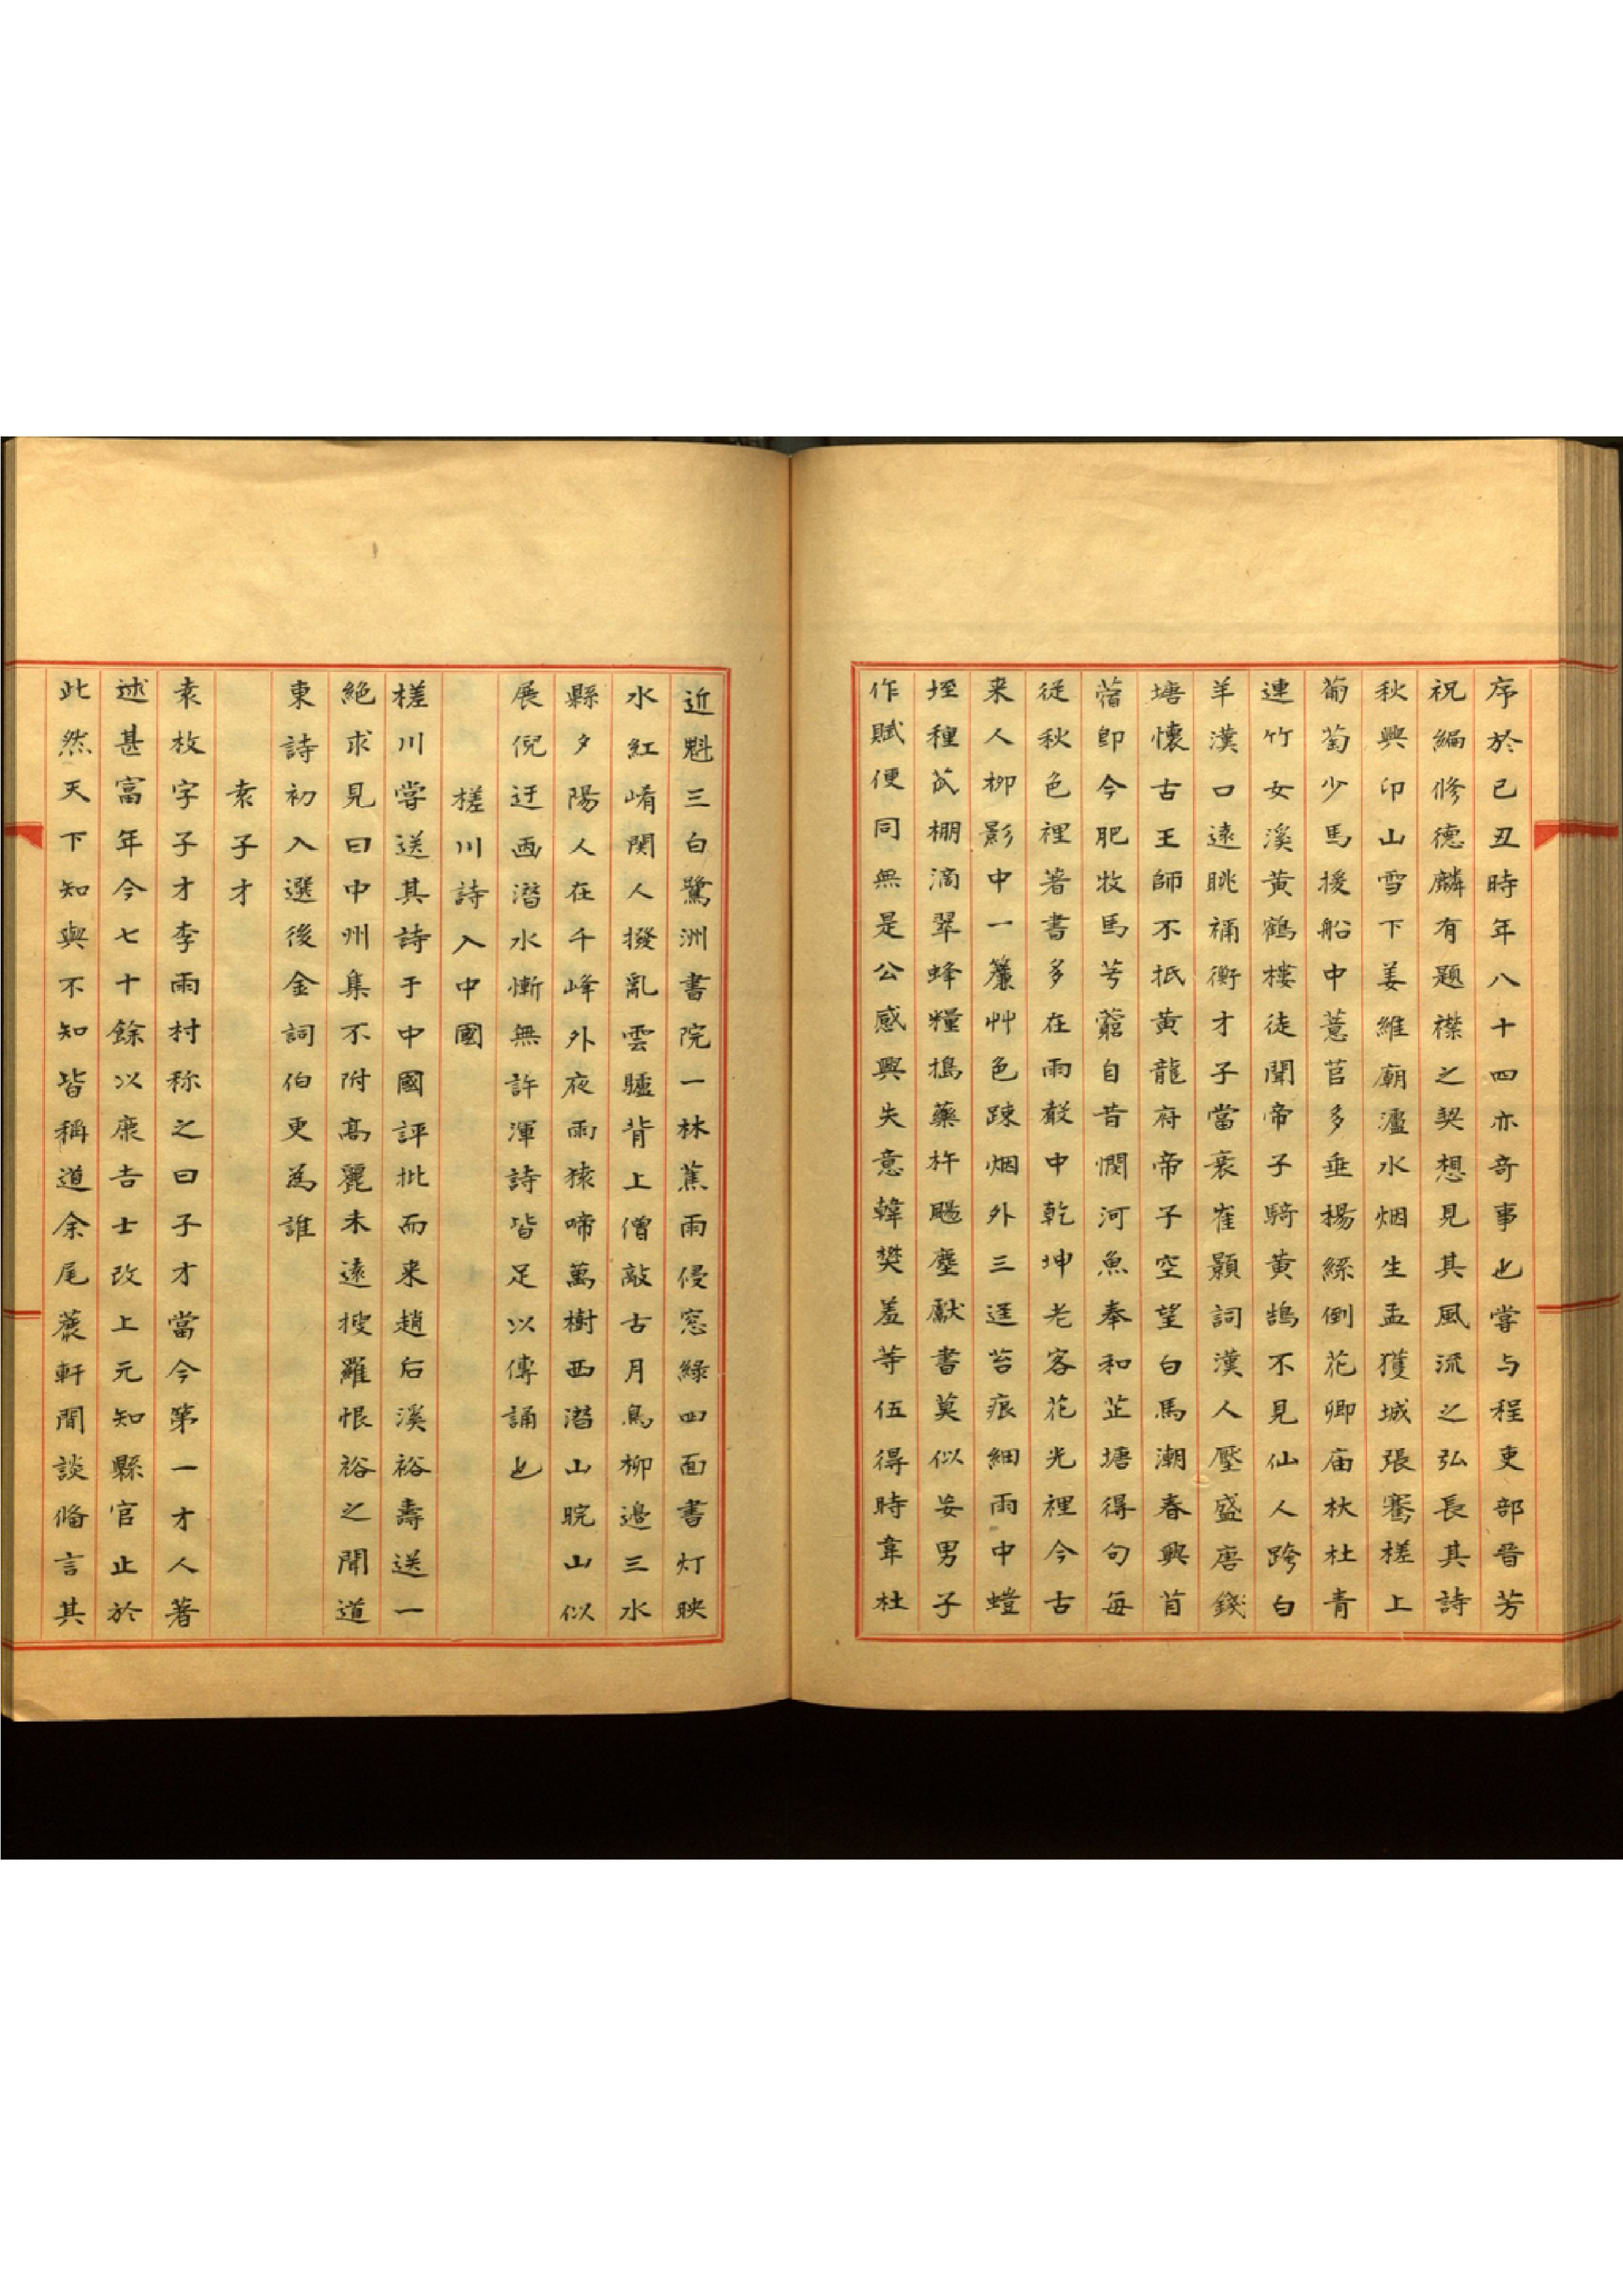 序於己丑時年八十四亦奇事也嘗与程吏部晋芳
祝編修德麟有題襟之契想見其風流之弘長其詩
秋興印山雪下姜維廟瀘水烟生孟獲城張騫槎上
葡萄少馬援船中薏苢多垂楊絲倒花卿庙杕杜青
連竹女溪黃鶴樓徒聞帝子騎黃鵠不見仙人跨白
羊漢口遠眺禰衡才子當衰崔顥詞漢人壓盛唐錢
塘懷古王師不抵黃龍府帝子空望白馬潮春興苜
蓿即今肥牧馬芎藭自昔憫河魚奉和芷塘得句每
從秋色裡著書多在雨聲中乾坤老客花光裡今古
来人柳影中一簾艸色踈烟外三逕苔痕細雨中螘
垤種芪棚滴翠蜂糧搗藥杵颺塵獻書莫似妄男子
作賦便同無是公感興失意韓樊羞等伍得時韋杜
近魁三白鷺洲書院一林蕉雨侵窓綠四面書灯映
水紅崤関人撥亂雲驢背上僧敲古月鳥柳邉三水
縣夕陽人在千峰外夜雨猿啼萬樹西潜山晥山似
展倪迂画潜水慚無許渾詩皆足以傳誦也
槎川詩入中國
槎川嘗送其詩于中國評批而来趙后溪裕壽送一
絶求見曰中州集不附高麗未遠搜羅恨裕之聞道
東詩初入選後金詞伯更為誰
袁子才
袁枚字子才李雨村称之曰子才當今第一才人著
述甚富年今七十餘以庶吉士改上元知縣官止於
此然天下知與不知皆稱道余尾蔗軒閒談俻言其